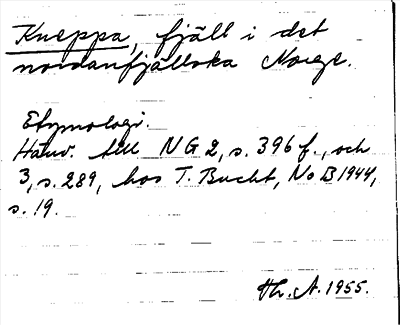 Kneppa, fjäll i det
nordanfjällska Norge.
Etymologi.
Hänv. till NG 2, s. 396 f., och
3, s. 289, hos T. Bucht, NoB 1944,
s. 19.
Hr. A. 1955.